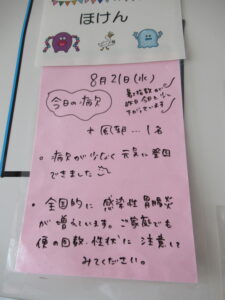 ほけん
8月21日(水)
今日の病欠
風邪…1名
• 病欠が少なく元気に登園
できました
• 全国的に感染性胃腸炎
が増えています。ご家庭でも
便の回数・性状に注意して
みてください。